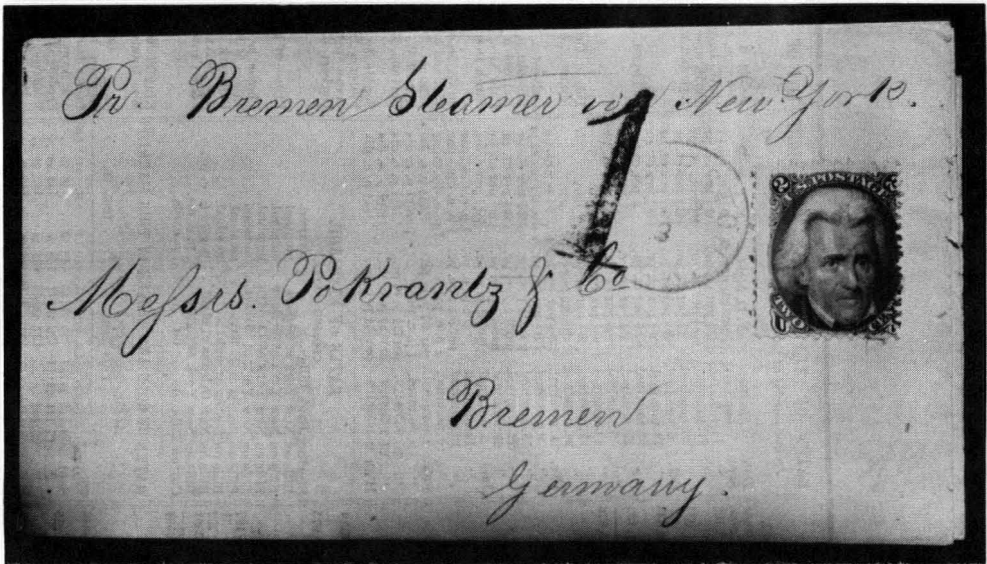 Pr. Bremen Steamer via New York.
1
3
2
U.S. POST
Messrs. Pokrantz & Co
TWO
Bremen
Germany.